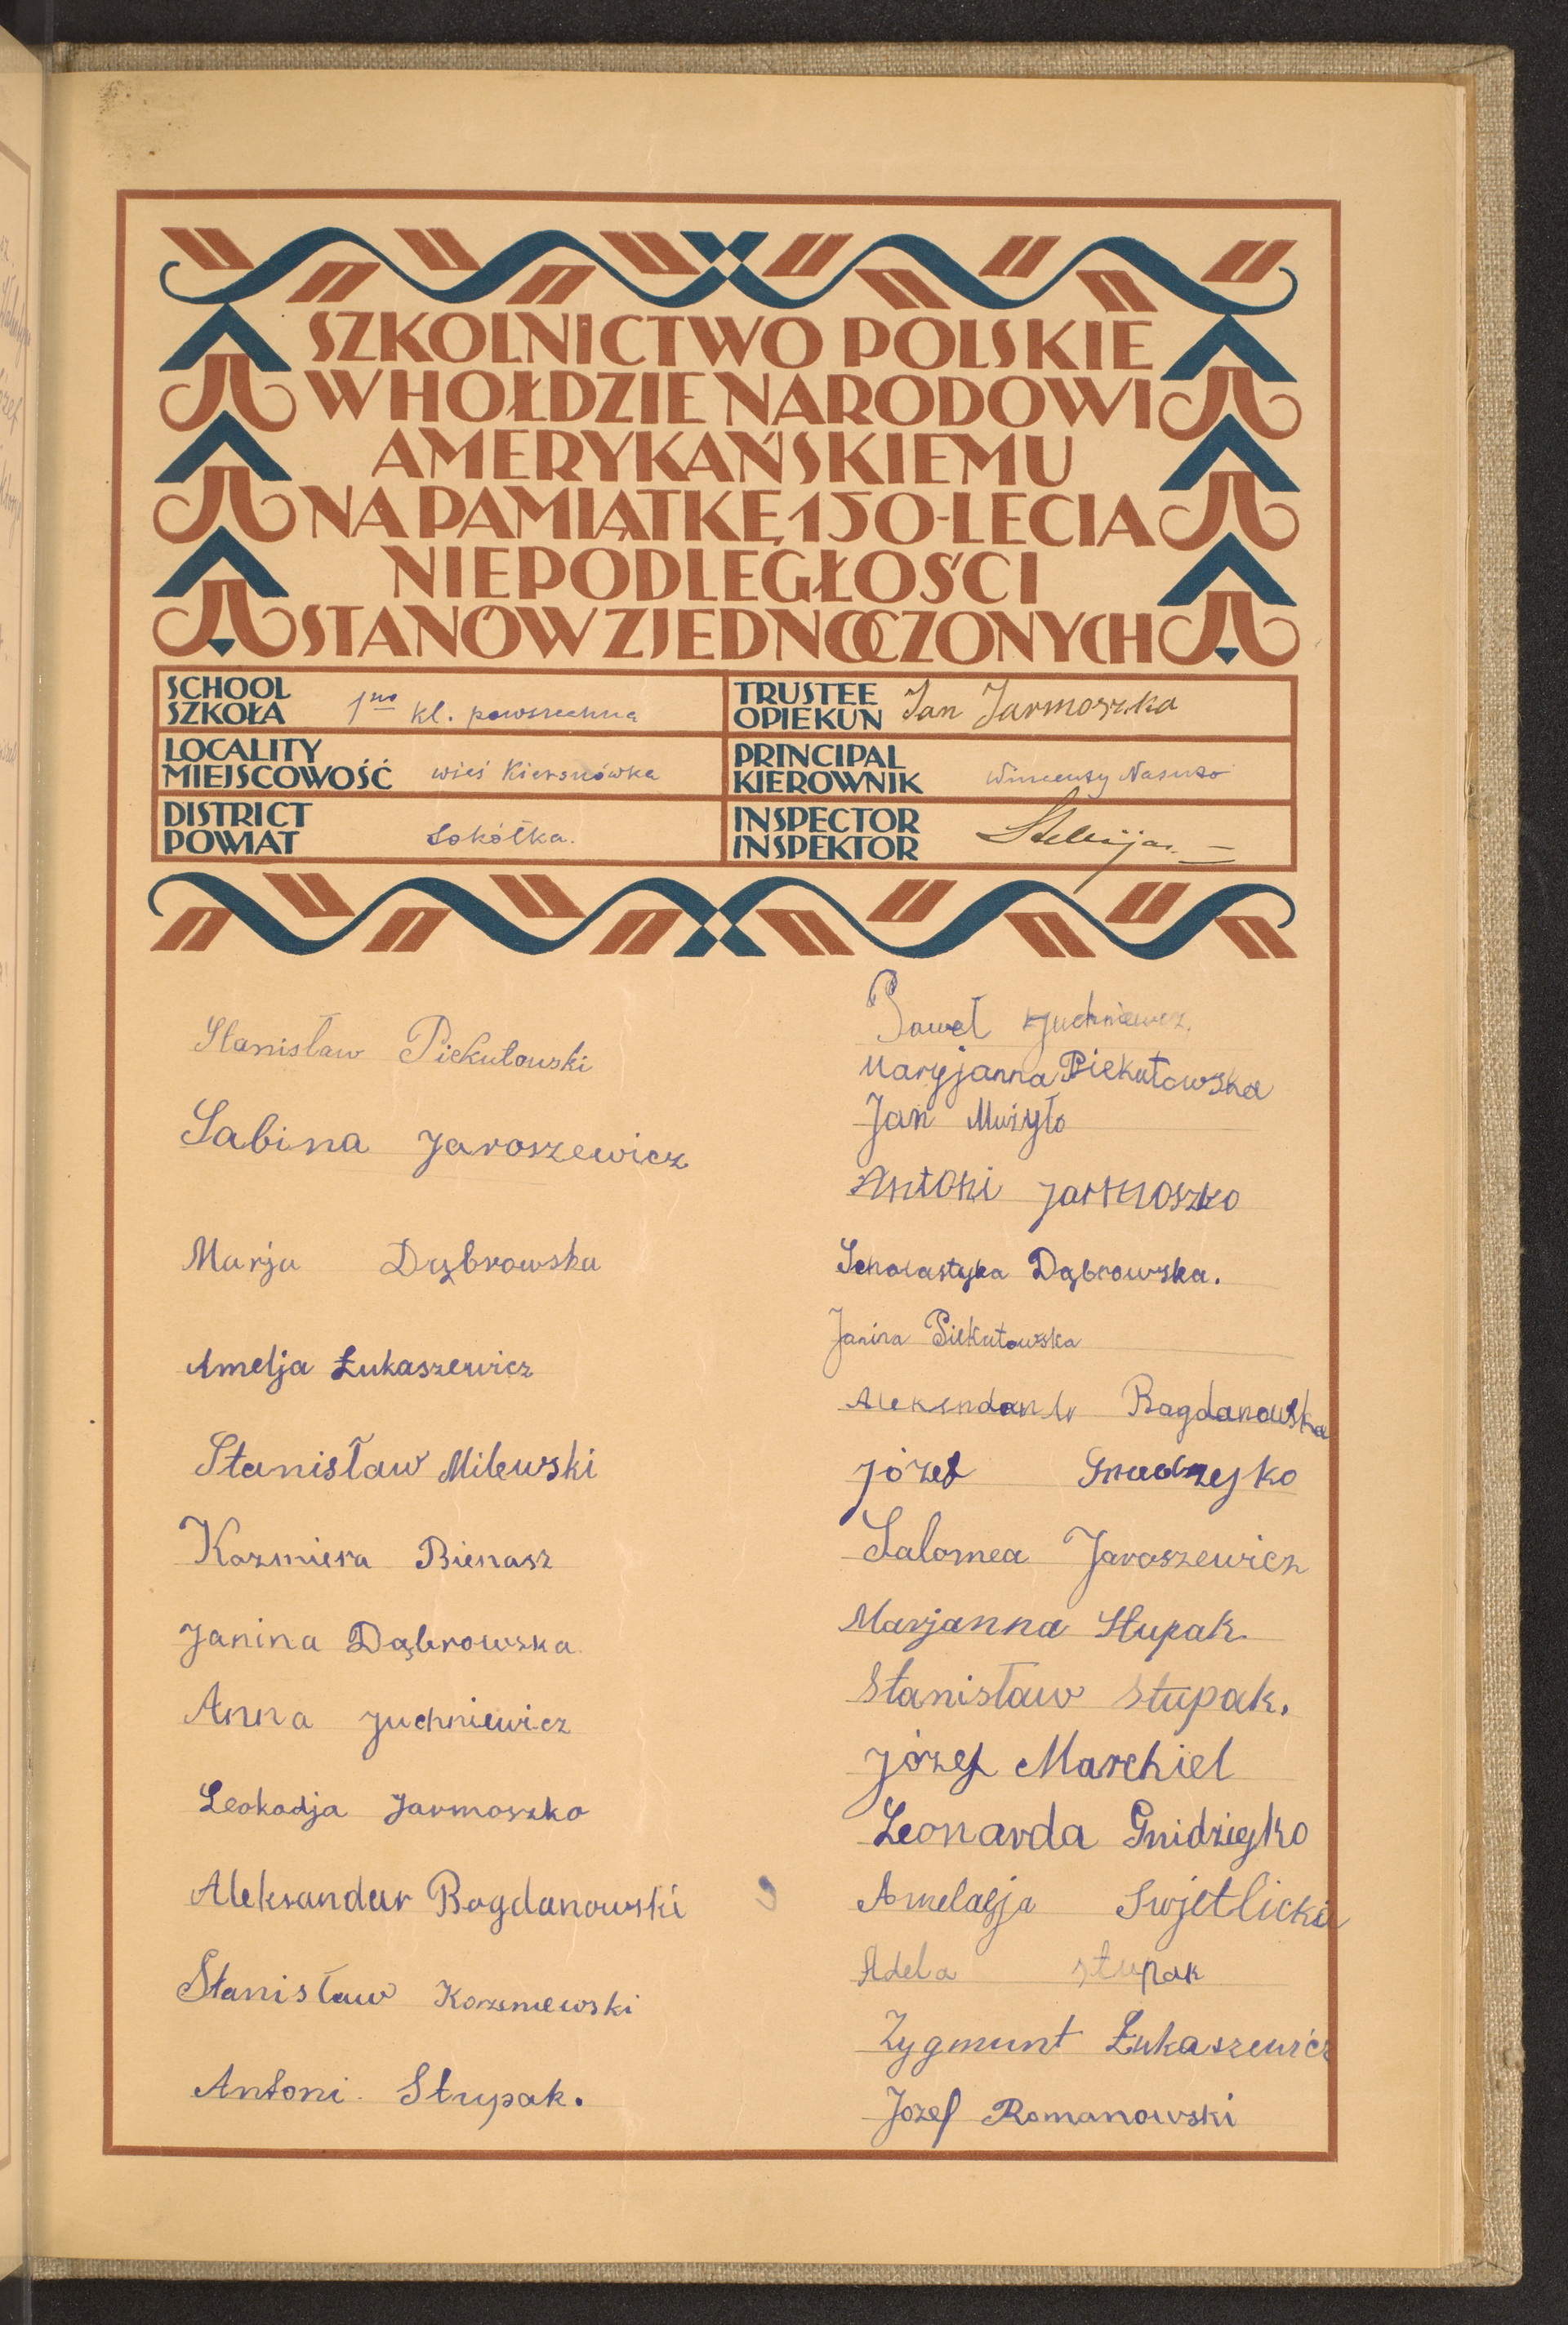 SZKOLNICTWO POLSKIE
W HOŁDZIE NARODOWI
AMERYKAŃSKIEMU
NA PAMIĄTKĘ 150-LECIA
NIEPODLEGŁOŚCI
STANÓW ZJEDNOCZONYCH
SCHOOL
SZKOŁA
1no kl. powszechna
TRUSTEE
OPIEKUN
Jan Jarmoszka
LOCALITY
MIEJSCOWOŚĆ
wieś Kiersnówka
PRINCIPAL
KIEROWNIK
Wincenty
DISTRICT
POWIAT
Sokółka.
INSPECTOR
INSPEKTOR
Stanisław Piekutowski
Sabina Jaroszewicz
Marja Dąbrowska
Amelja Łukaszewicz
Stanisław Milewski
Kazmiera Bienasz
Janina Dąbrowska
Anna Juchniewicz
Leokadja Jarmoszko
Aleksander Bogdanowski
Stanisław Korzeniewski
Antoni Stupak.
Paweł Juchniewicz.
Maryjanna Piekutowska
Jan Mużyło
Antoni Jarmoszko
Scholastyka Dąbrowska.
Janina Piekutowska
Bagdanowska
Józef
Salomea Jaroszewicz
Marjanna Stupak
Stanisław Stupak.
Józef Marchiel
Leonarda Gnidziejko
Swjetlicka
Adela Stupak
Zygmunt Łukaszewicz
Jozef Romanowski